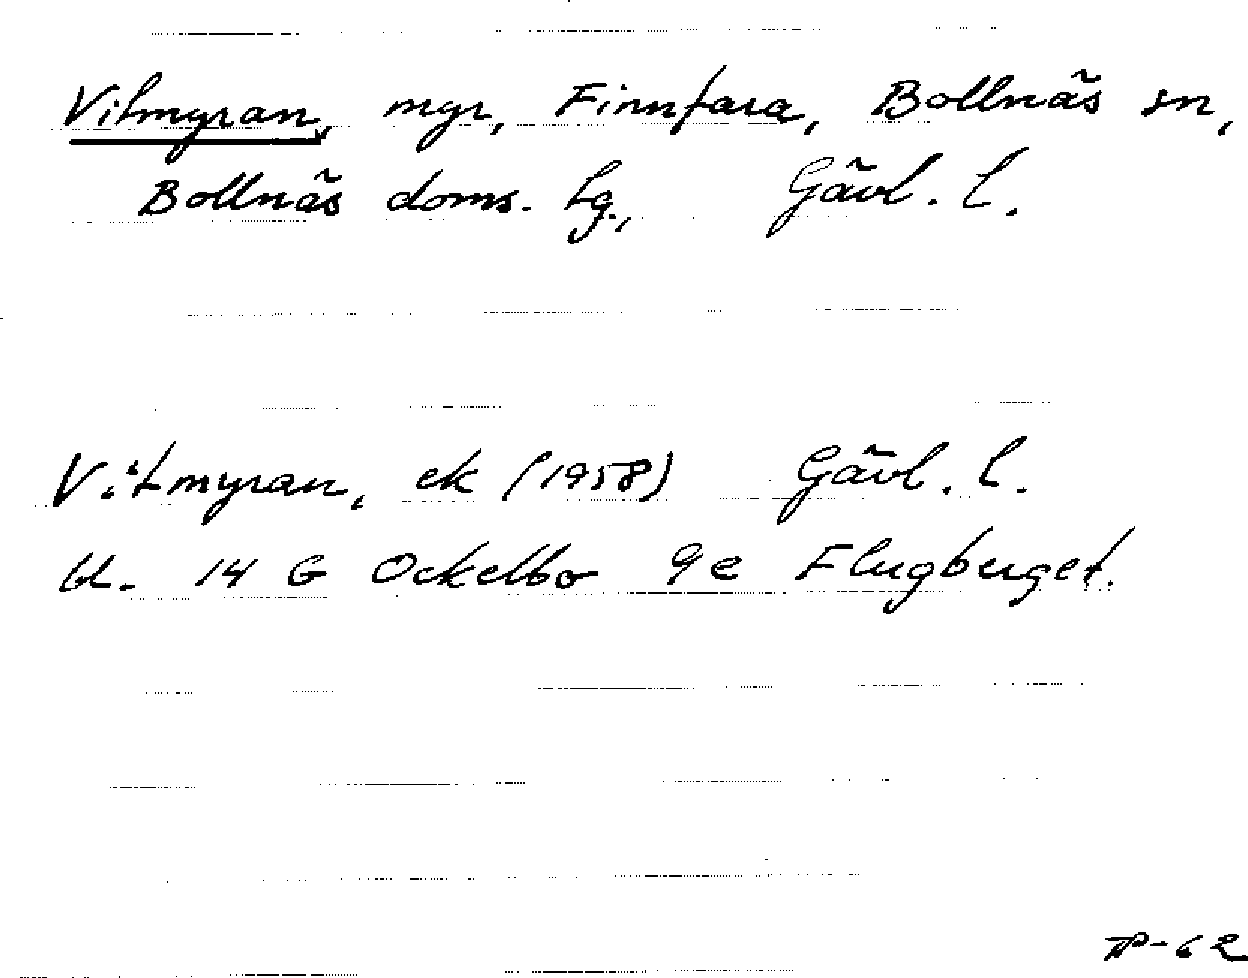 Vitmyran, myr, Finnfara, Bollnäs sn,
Bollnäs doms. lg., Gävl. l.
Vitmyran, ek (1958) Gävl. l.
bl. 14 G Ockelbo 9e Flugberget.
TP-62